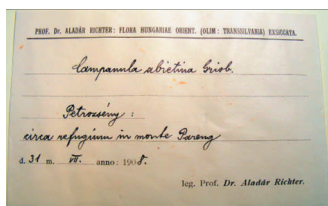 PROF. Dr. ALADÁR RICHTER: FLORA HUNGARIAE ORIENT. (OLIM: TRANSSILVANIA) EXSICCATA.
Campanula abietina Grisb.
Petrozsény :
circa refugium in monte Pareng
d. 31 m. VII. anno: 1908.
leg. Prof. Dr. Aladár Richter.